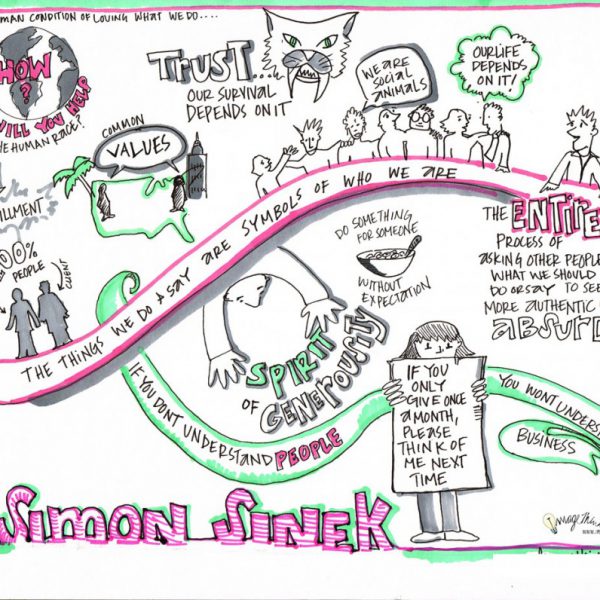 HUMAN CONDITION OF LOVING WHAT WE DO....
HOW
?
WILL YOU HELP
THE HUMAN RACE?
TRUST...
OUR SURVIVAL
DEPENDS ON IT
WE ARE
SOCIAL
ANIMALS
OUR LIFE
DEPENDS
ON IT!
COMMON
VALUES
100%
PEOPLE
CLIENT
THE THINGS WE DO & SAY ARE SYMBOLS OF WHO WE ARE
DO SOMETHING
FOR SOMEONE
WITHOUT
EXPECTATION
THE ENTIRE
PROCESS OF
ASKING OTHER PEOPLE
WHAT WE SHOULD
DO OR SAY TO SEE
MORE AUTHENTIC
ABSURD
SPIRIT
OF GENEROUSITY
IF YOU DON'T UNDERSTAND PEOPLE
YOU WONT UNDERS
BUSINESS
IF YOU
ONLY
GIVE ONCE
A MONTH,
PLEASE
THINK OF
ME NEXT
TIME
SIMON SINEK